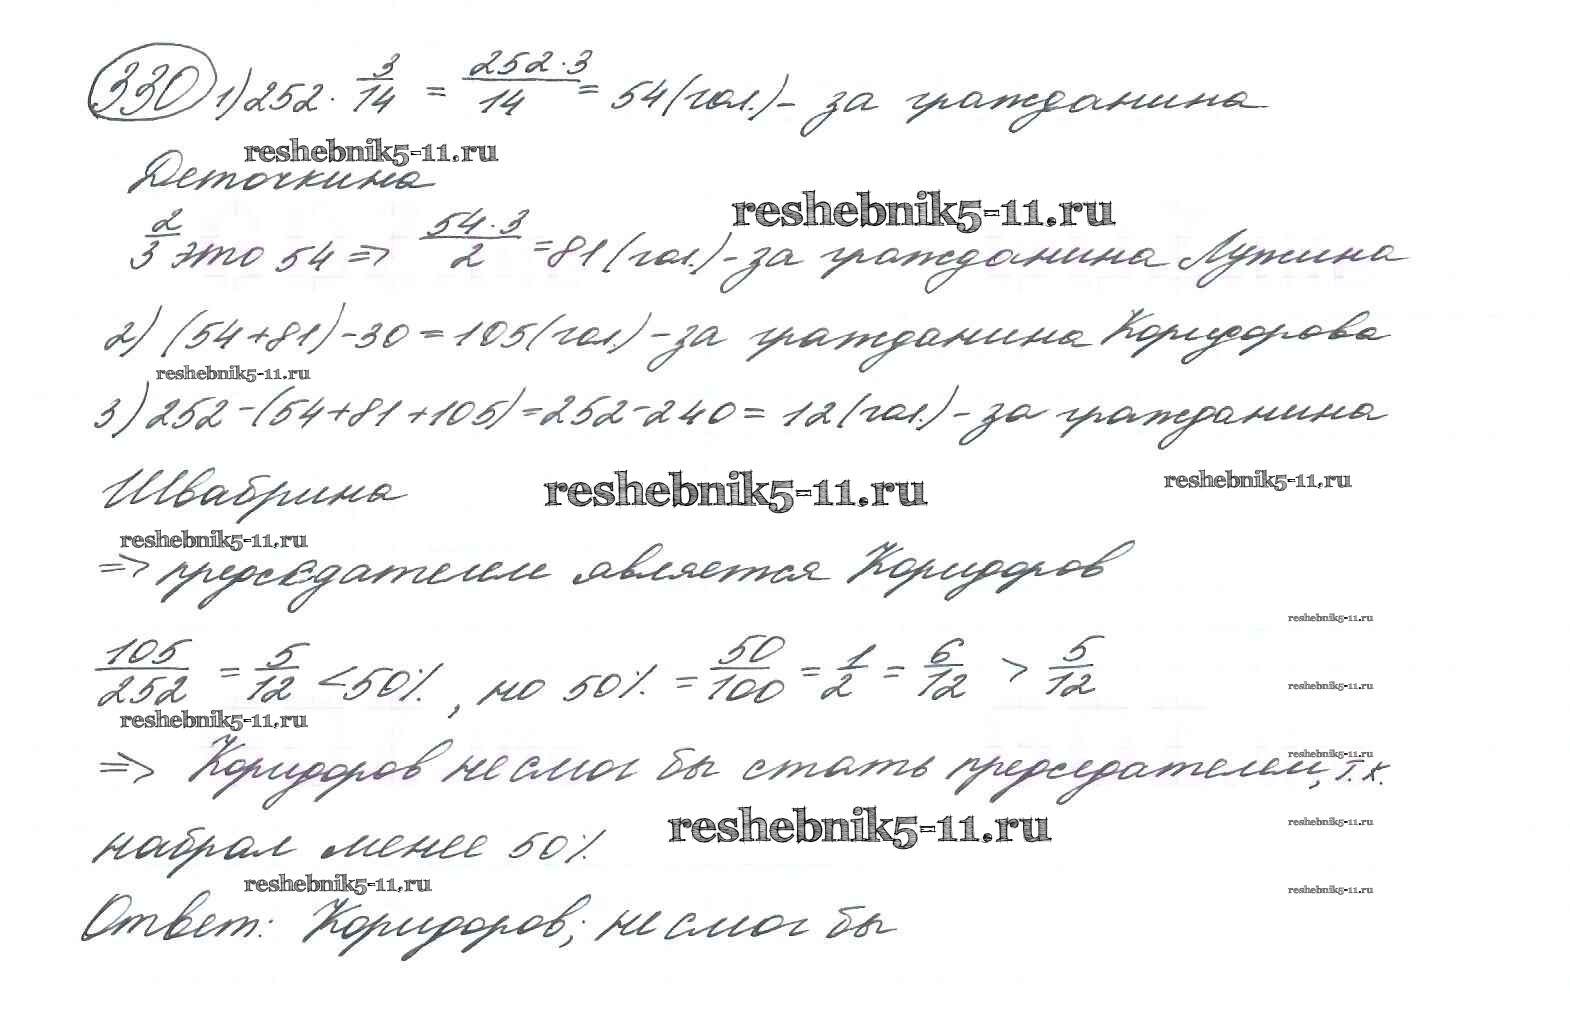 330 1) 252 · 3/14 = 252·3/14 = 54 (гол.) – за гражданина
reshebnik5-11.ru
Деточкина
reshebnik5-11.ru
2/3 это 54 => 54·3/2 = 81 (гол.) – за гражданина Лужина
2) (54+81) – 30 = 105 (гол.) – за гражданина Коридорова
reshebnik5-11.ru
3) 252 – (54+81+105) = 252 – 240 = 12 (гол.) – за гражданина
Швабрина
reshebnik5-11.ru
reshebnik5-11.ru
reshebnik5-11.ru
=> председателем является Коридоров
reshebnik5-11.ru
105/252 = 5/12 < 50%, но 50% = 50/100 = 1/2 = 6/12 > 5/12
reshebnik5-11.ru
reshebnik5-11.ru
reshebnik5-11.ru
=> Коридоров не смог бы стать председателем, т.к.
reshebnik5-11.ru
reshebnik5-11.ru
набрал менее 50%
reshebnik5-11.ru
reshebnik5-11.ru
Ответ: Коридоров; не смог бы